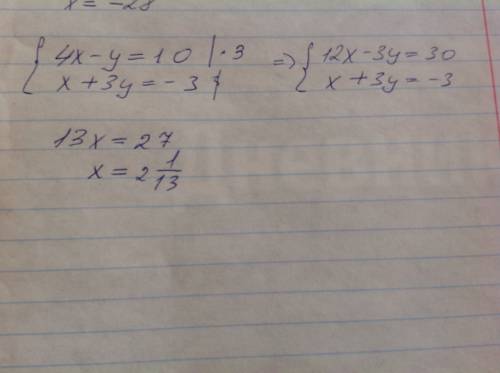 x = -28
{ 4x - y = 10 | · 3 => { 12x - 3y = 30
x + 3y = -3 | x + 3y = -3
13x = 27
x = 2 1/13